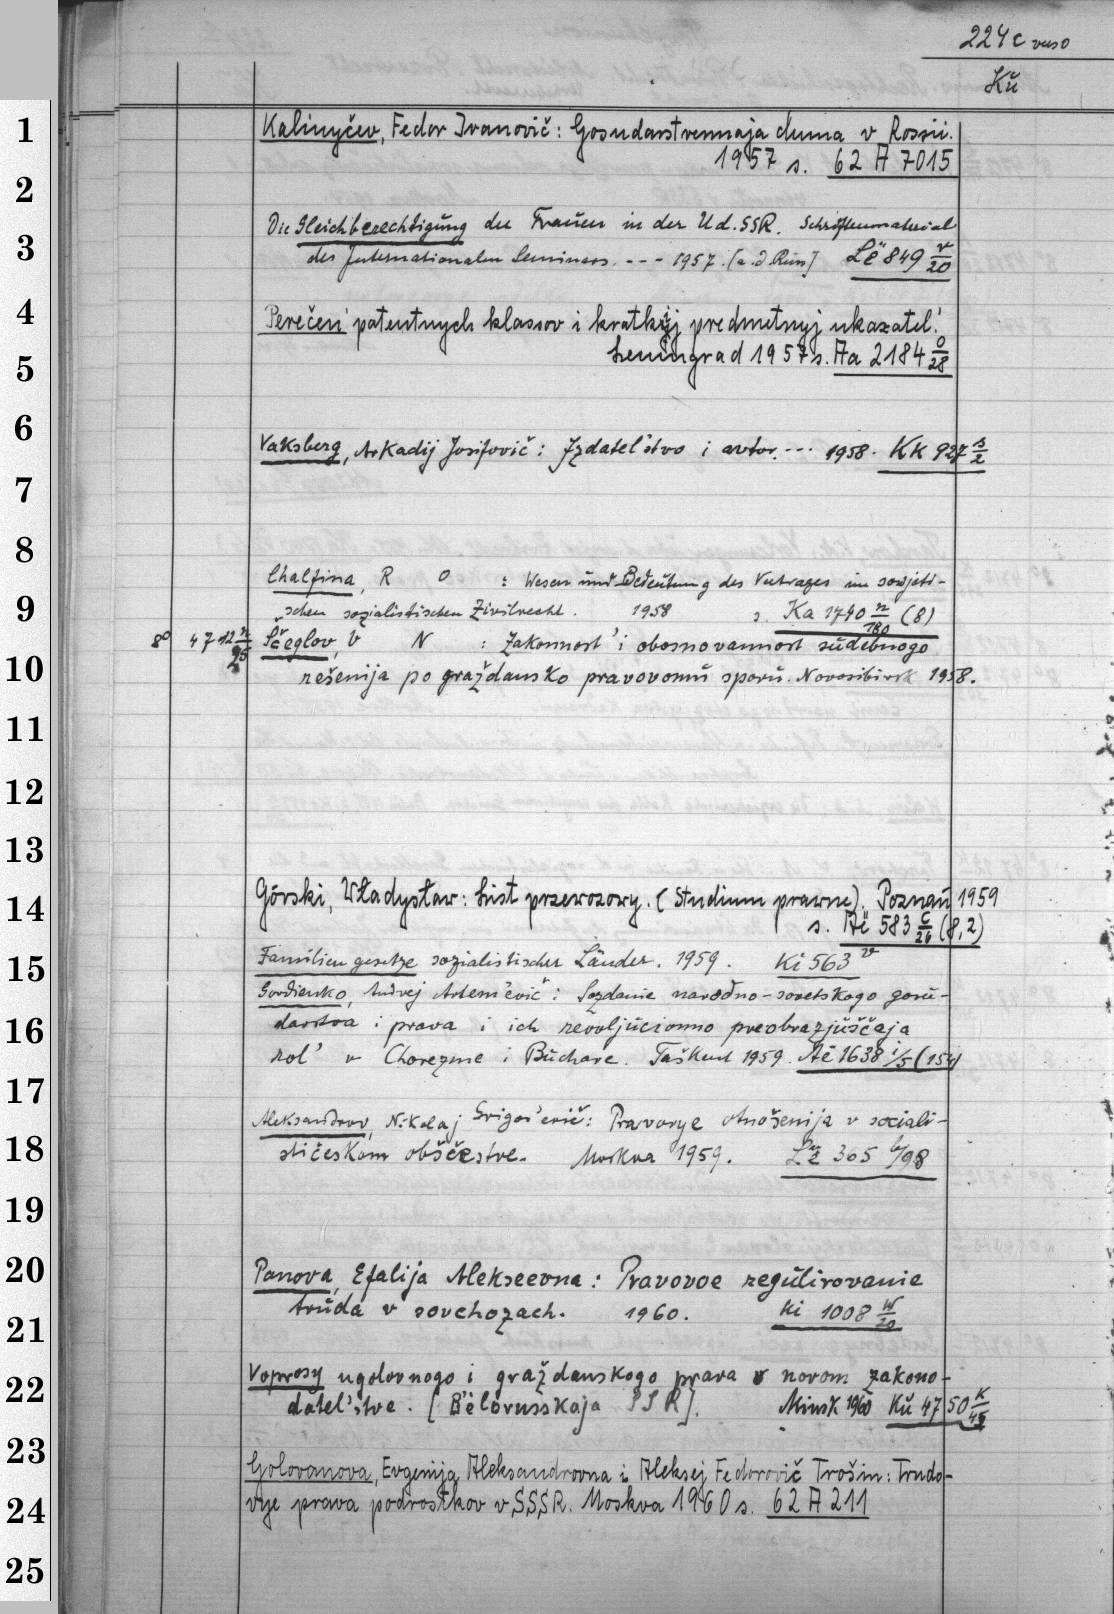 224c verso
Kŭ
1
Kalinyčev, Fedor Ivanovič: Gosudarstvennaja duma v Rossii.
1957 s. 62 A 7015
2
Die Gleichberechtigung der Frauen in der UdSSR. Schriftenmaterial
3
des Internationalen Seminars. --- 1957. [a.d. Russ] Lë 849 v/20
4
Perečen' patentnych klassov i kratkij predmetnyj ukazatel'.
5
Leningrad 1957 s. Aa 2184 o/28
6
Vaksberg, Arkadij Josifovič: Izdatel'stvo i avtor. --- 1958. Kk 927 s/2
7
8
Chalfina, R O : Wesen und Bedeutung des Vertrages im sowjeti-
9
schen sozialistischen Zivilrecht. 1958 s. Ka 1740 n/180 (8)
8° 4712 n/25 Ščeglov, V N : Zakonnost' i obosnovannost sudebnogo
10
rešenija po graždansko pravovomu sporu. Novosibirsk 1958.
11
12
13
14
Górski, Władysław: List przewozowy. (Studium prawne). Poznań 1959
s. Aë 583 c/26 (8,2)
15
Familiengesetze sozialistischer Länder. 1959. Ki 563 v
Gordienko, Andrej Artem'evič: Sozdanie narodno-sovetskogo gosu-
16
darstva i prava i ich revoljucionno preobrazjuščaja
rol' v Chorezme i Buchare. Taškent 1959. Aë 1638 i/5 (154)
17
Aleksandrov, Nikolaj Grigor'evič: Pravovye otnošenija v sociali-
18
stičeskom obščestve. Moskva 1959. Lë 365 b/98
19
20
Panova, Efalija Alekseevna: Pravovoe regulirovanie
truda v sovchozach. 1960. Ki 1008 w/20
21
Voprosy ugolovnogo i graždanskogo prava v novom zakono-
22
datel'stve. [Bělorusskaja SSR]. Minsk 1960 Kŭ 4750 k/45
23
Golovanova, Evgenija Aleksandrovna i Aleksej Fedorovič Trošin: Trudo-
24
vye prava podrostkov v SSSR. Moskva 1960 s. 62 A 211
25